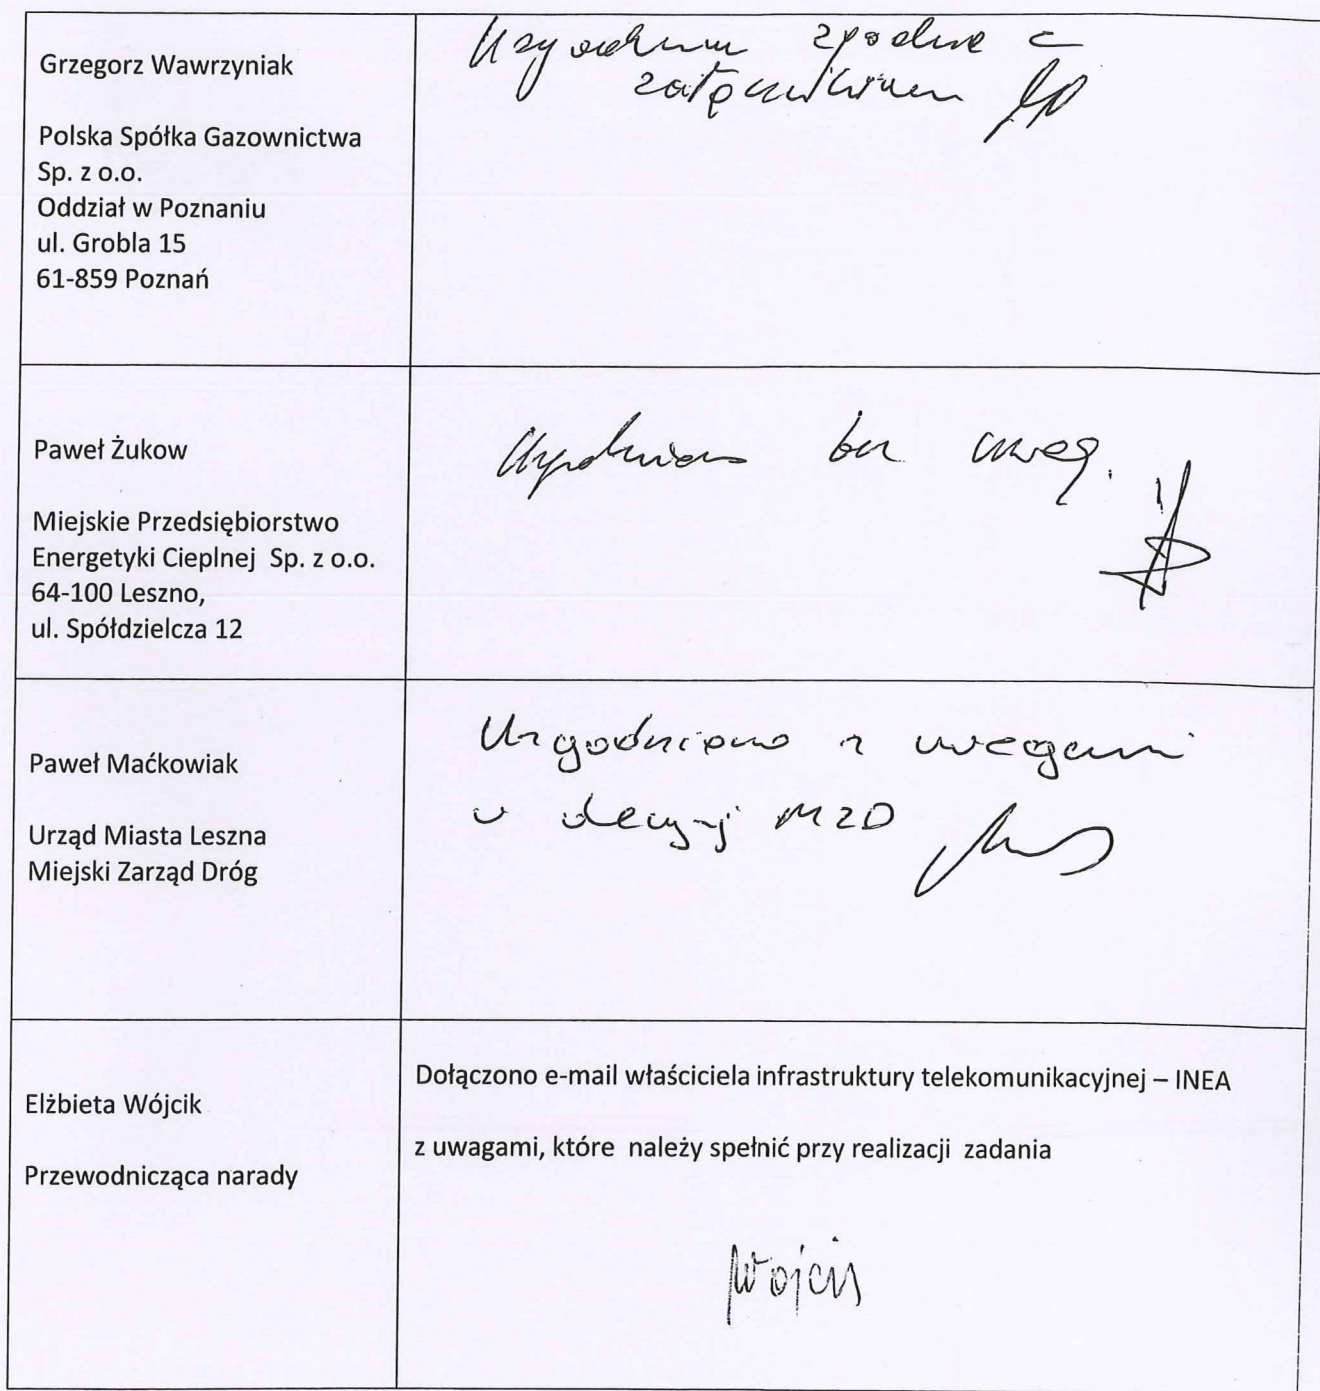 Grzegorz Wawrzyniak
Polska Spółka Gazownictwa
Sp. z o.o.
Oddział w Poznaniu
ul. Grobla 15
61-859 Poznań
zgodnie z
załącznikiem
Paweł Żukow
Miejskie Przedsiębiorstwo
Energetyki Cieplnej Sp. z o.o.
64-100 Leszno,
ul. Spółdzielcza 12
bez uwag.
Paweł Maćkowiak
Urząd Miasta Leszna
Miejski Zarząd Dróg
Uzgodniono z uwagami
w decyzji MZD
Elżbieta Wójcik
Przewodnicząca narady
Dołączono e-mail właściciela infrastruktury telekomunikacyjnej – INEA
z uwagami, które należy spełnić przy realizacji zadania
Wójcik